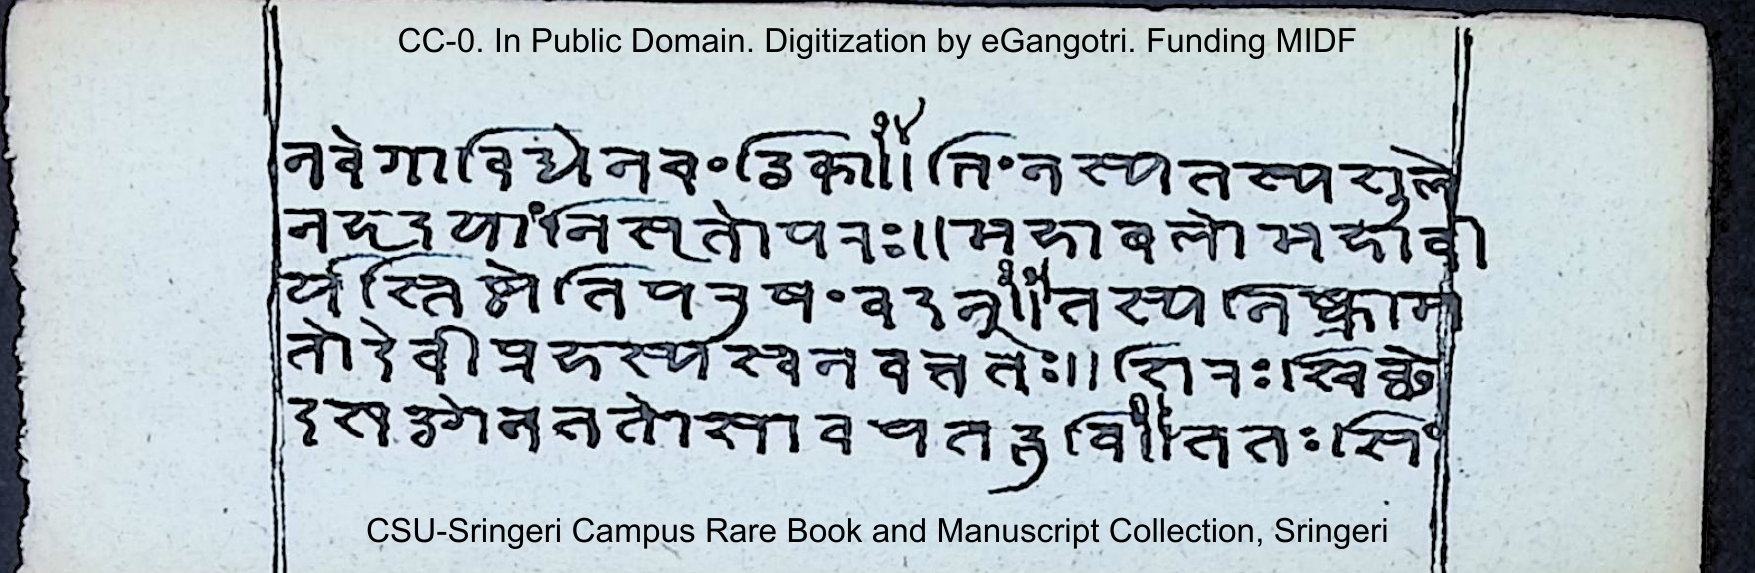 CC-0. In Public Domain. Digitization by eGangotri. Funding MIDF
नवेगाविध्येनचंडिका।।३४ तिंनस्यतस्यशुले
नहृदयांनिसृतोपरः।।महाबलोमहावी
र्यस्तिष्ठेतिपुरुषंवदन्।।३५ तस्यनिष्क्राम
तोदेवीप्रहस्यस्वनवत्ततः।।शिरःश्चिच्छे
दखड्गेनततोसावपतद्भुवि।।३६ ततःसिं
CSU-Sringeri Campus Rare Book and Manuscript Collection, Sringeri